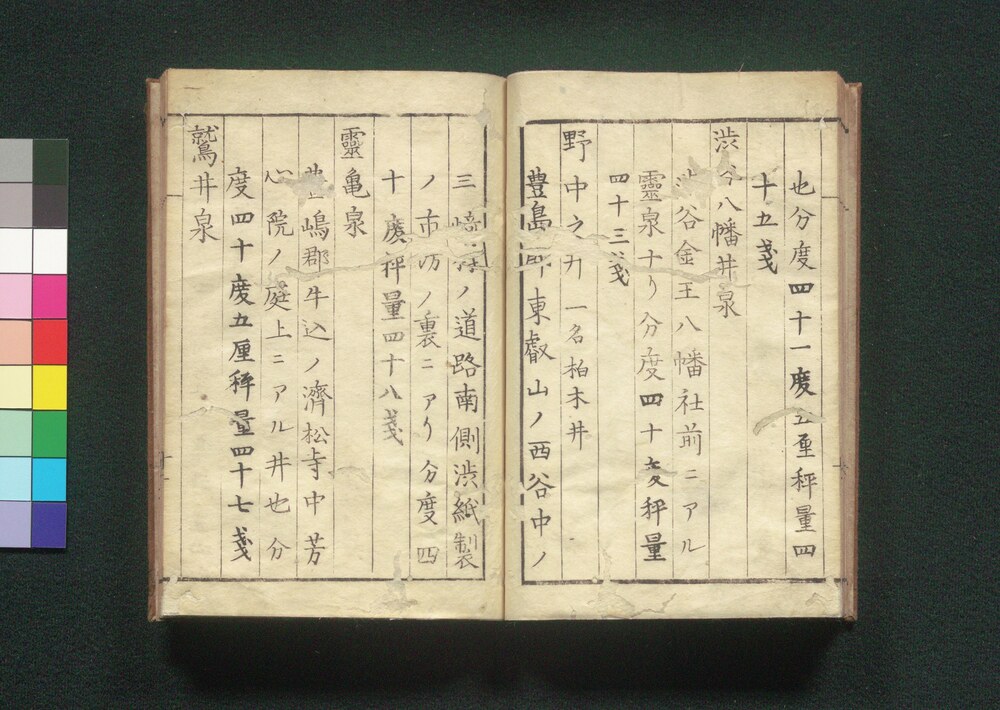 也分度四十一度五厘秤量四
十五戔
渋谷八幡井泉
谷金王八幡社前ニアル
靈泉ナリ分度四十度秤量
四十三戔
野中之井 一名柏木井
豊島郡東叡山ノ西谷中ノ
三崎ノ道路南側渋紙製
ノ市ノ裏ニアリ分度四
十度秤量四十八戔
靈亀泉
嶋郡牛込ノ濟松寺中芳
心院ノ庭上ニアル井也分
度四十度五厘秤量四十七戔
鷲井泉